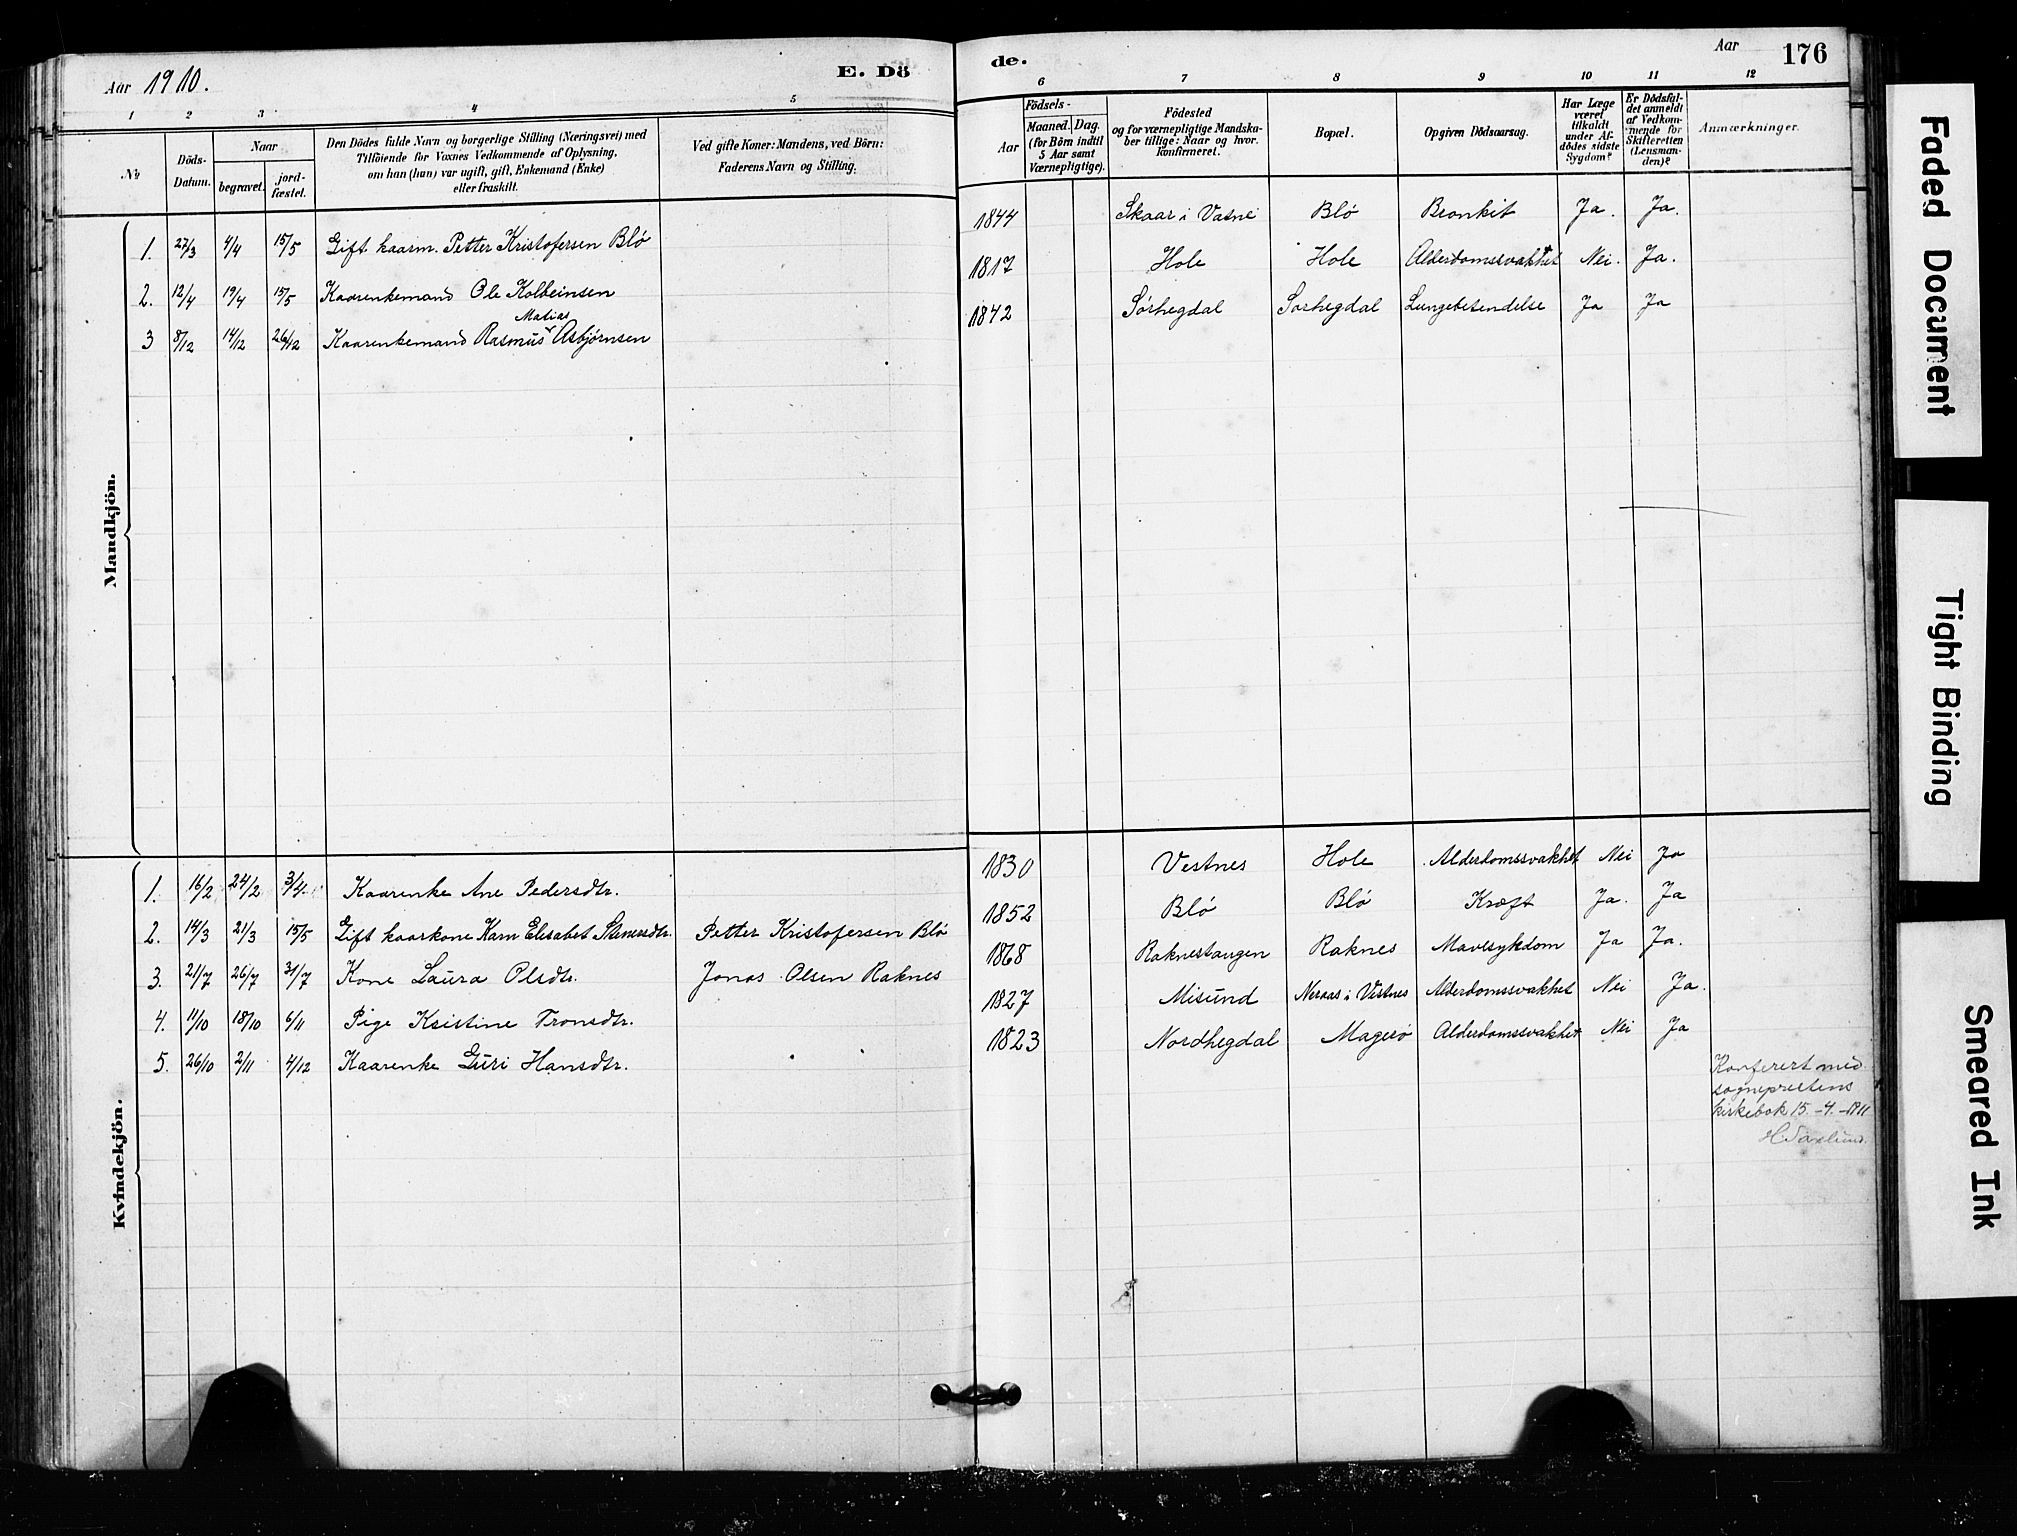 Aar 1910.
E. Dö
de.
Aar
176
1 2 3 4 5 6 7 8 9 10 11 12
No
Döds-
Datum.
Naar
begravet.
jord-
fæstet.
Den Dödes fulde Navn og borgerlige Stilling (Næringsvei) med
Tilföiende for Voxnes Vedkommende af Oplysning,
om han (hun) var ugift, gift, Enkemand (Enke)
eller fraskilt.
Ved gifte Koner: Mandens, ved Börn:
Faderens Navn og Stilling.
Födsels-
Aar
Maaned. Dag.
(for Börn indtil
5 Aar samt
Værnepligtige).
Födested
og for værnepligtige Mandska-
ber tillige: Naar og hvor
konfirmeret.
Bopæl.
Opgiven Dödsaarsag.
Har Læge
været
tilkaldt
under Af-
dödes sidste
Sygdom?
Er Dödsfal-
det anmeldt
af Vedkom-
mende for
Skifteretten
(Lensman-
den)?
Anmærkninger.
Mandkjön.
1. 27/3 4/4 15/5 Gift kaarm. Petter Kristofersen Blø 1844 Skaar i Vatne Blø Bronkit Ja. Ja.
2. 12/4 19/4 15/5 Kaarenkemand Ole Kolbeinsen 1817 Hole Hole Alderdomssvakhet Nei. Ja.
Matias
3 8/12 14/12 26/12 Kaarenkemand Rasmus Asbjørnsen 1842 Sørhegdal Sørhegdal Lungebetendelse Ja Ja
Kvindekjön.
1. 16/2 24/2 3/4. Kaarenke Ane Pedersdtr. 1830 Vestnes Hole Alderdomssvakhet Nei Ja
2. 14/3 21/3 15/5 Gift kaarkone Karn Elisabet Steinersdtr. Petter Kristofersen Blø 1852 Blø Blø Kræft Ja. Ja
3. 21/7 26/7 31/7 Kone Laura Olsdtr. Jonas Olsen Raknes 1868 Raknestangen Raknes Mavesykdom Ja Ja.
4. 11/10 18/10 6/11 Pige Kristine Tronsdtr. 1827 Misund Neraas i Vestnes Alderdomssvakhet Nei Ja.
5. 26/10 2/11 4/12 Kaarenke Guri Hansdtr. 1823 Nordhegdal Magerø Alderdomssvakhet Nei Ja
Konferert med
sogneprestens
kirkebok 15.-4.-1911
H Saxlund.
Faded Document
Tight Binding
Smeared Ink